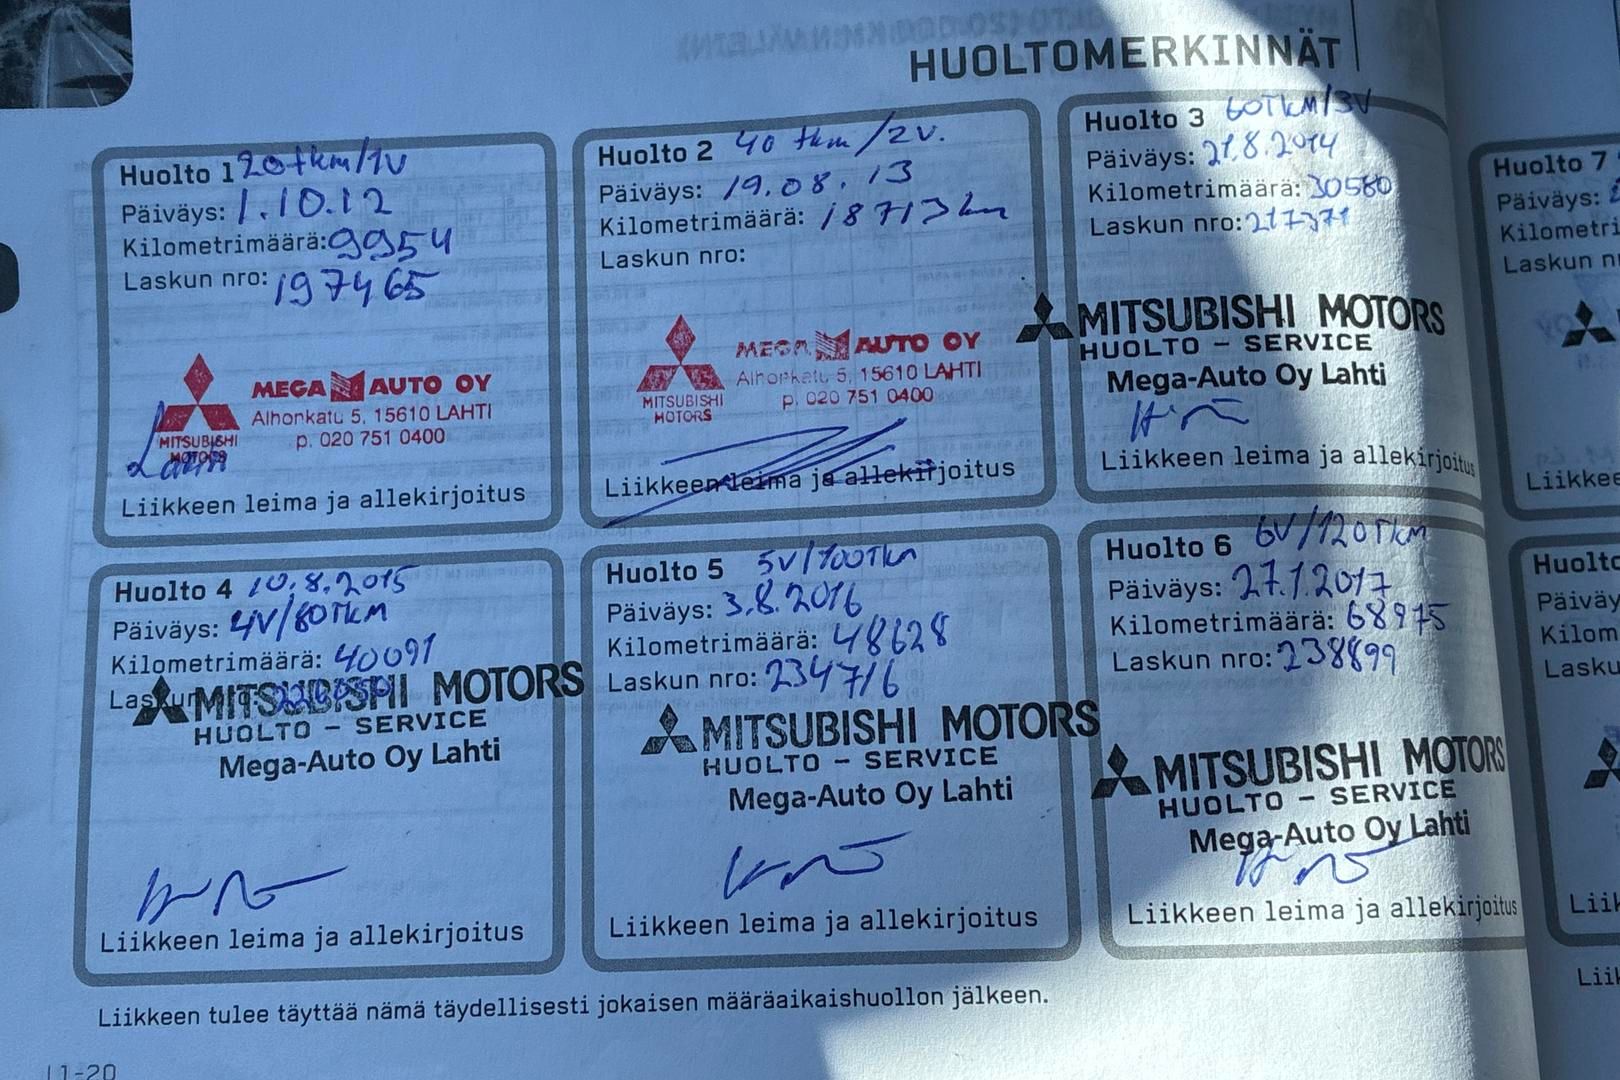 HUOLTOMERKINNÄT
Huolto 1 20tkm/1V
Päiväys: 1.10.12
Kilometrimäärä: 9954
Laskun nro: 197465
MEGA AUTO OY
Alhonkatu 5, 15610 LAHTI
p. 020 751 0400
MITSUBISHI
MOTORS
Liikkeen leima ja allekirjoitus
Huolto 2 40 tkm/2v.
Päiväys: 19.08.13
Kilometrimäärä: 18713 km
Laskun nro:
MEGA AUTO OY
Alhonkatu 5, 15610 LAHTI
p. 020 751 0400
MITSUBISHI
MOTORS
Liikkeen leima ja allekirjoitus
Huolto 3 60TKM/3V
Päiväys: 21.8.2014
Kilometrimäärä: 30580
Laskun nro: 217371
MITSUBISHI MOTORS
HUOLTO - SERVICE
Mega-Auto Oy Lahti
Liikkeen leima ja allekirjoitus
Huolto 4 10.8.2015
Päiväys: 4V/80TKM
Kilometrimäärä: 40091
MITSUBISHI MOTORS
HUOLTO - SERVICE
Mega-Auto Oy Lahti
Liikkeen leima ja allekirjoitus
Huolto 5 5V/100TKM
Päiväys: 3.8.2016
Kilometrimäärä: 48628
Laskun nro: 234716
MITSUBISHI MOTORS
HUOLTO - SERVICE
Mega-Auto Oy Lahti
Liikkeen leima ja allekirjoitus
Huolto 6 6V/120TKM
Päiväys: 27.1.2017
Kilometrimäärä: 68975
Laskun nro: 238899
MITSUBISHI MOTORS
HUOLTO - SERVICE
Mega-Auto Oy Lahti
Liikkeen leima ja allekirjoitus
Huolto 7
Päiväys:
Liikkeen tulee täyttää nämä täydellisesti jokaisen määräaikaishuollon jälkeen.